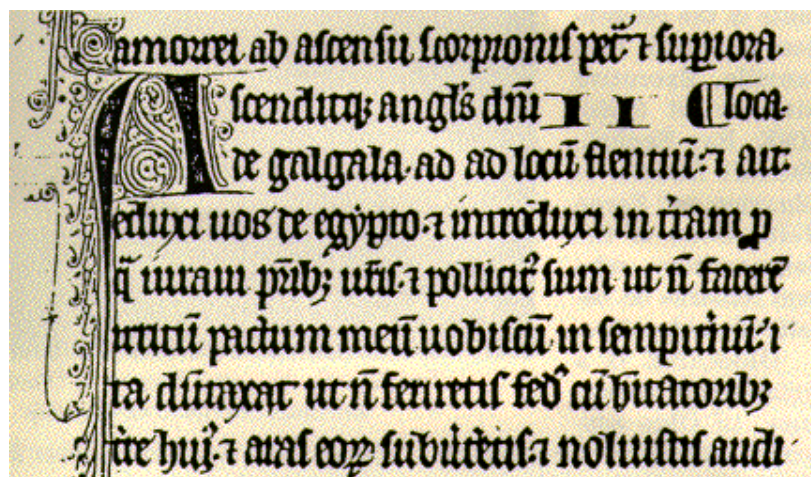 amorrei ab ascensu scorpionis pet᷑ ⁊ supiora
Ascenditqꝫ angl̃s dñi II ¶ loca
de galgala ad ad locũ flentiũ ⁊ ait
eduxi uos de egypto ⁊ introduxi in t̃ram p
q̃ iuraui p̃ribꝫ ufĩs ⁊ pollicit᷒ sum ut ñ facerẽ
irritũ pactum meũ uobiscũ in sempit̃nũ i
ta dũtaxat ut ñ feriretis fed᷒ cũ h̃itatoribꝫ
t̃re hui᷒ ⁊ aras eoꝝ subũt̃etis ⁊ noluistis audi